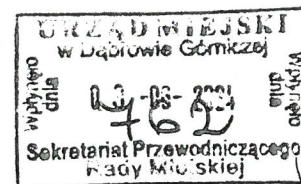 URZĄD MIEJSKI
w Dąbrowie Górniczej
Wpłynęło dnia
762
Sekretariat Przewodniczącego
Rady Miejskiej